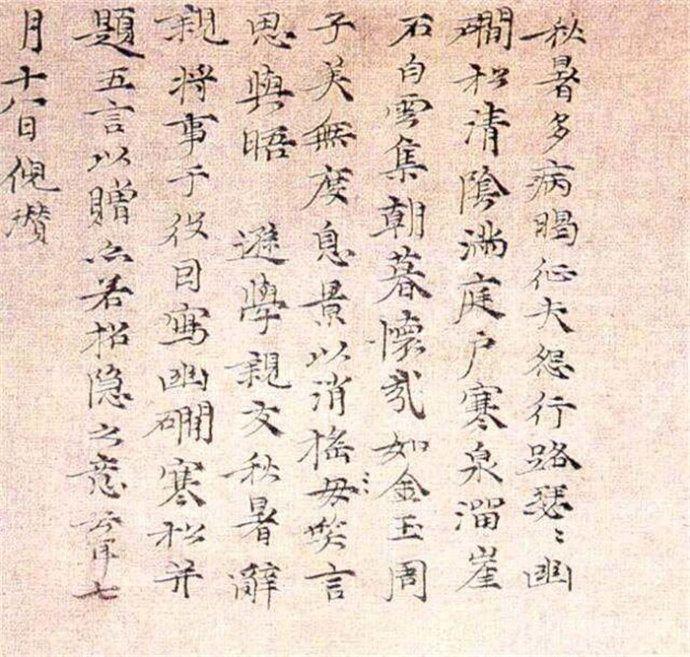 秋暑多病暍征夫怨行路瑟〻幽
磵松清陰滿庭戶寒泉溜崖
石白雲集朝暮懷哉如金玉周
子美無度息景以消搖毋〻笑言
思與晤 遜學親友秋暑辭
親將事于役因寫幽磵寒松并
題五言以贈亦若招隱之意云耳七
月十八日倪瓚